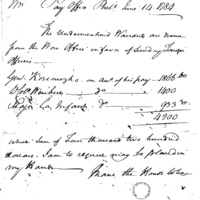 Pay Office Phila June 14 1784
The Undermentioned Warrants are drawn
from the War Office in favor of Sundry Foreign
Officers
Genl. Kosciuszko on acct of his pay 1866
do 1400
Major do 933
4200
which Sum of Four thousand two hundred
Dollars I am to request may be placed in
my Hands
I have the Honor to be